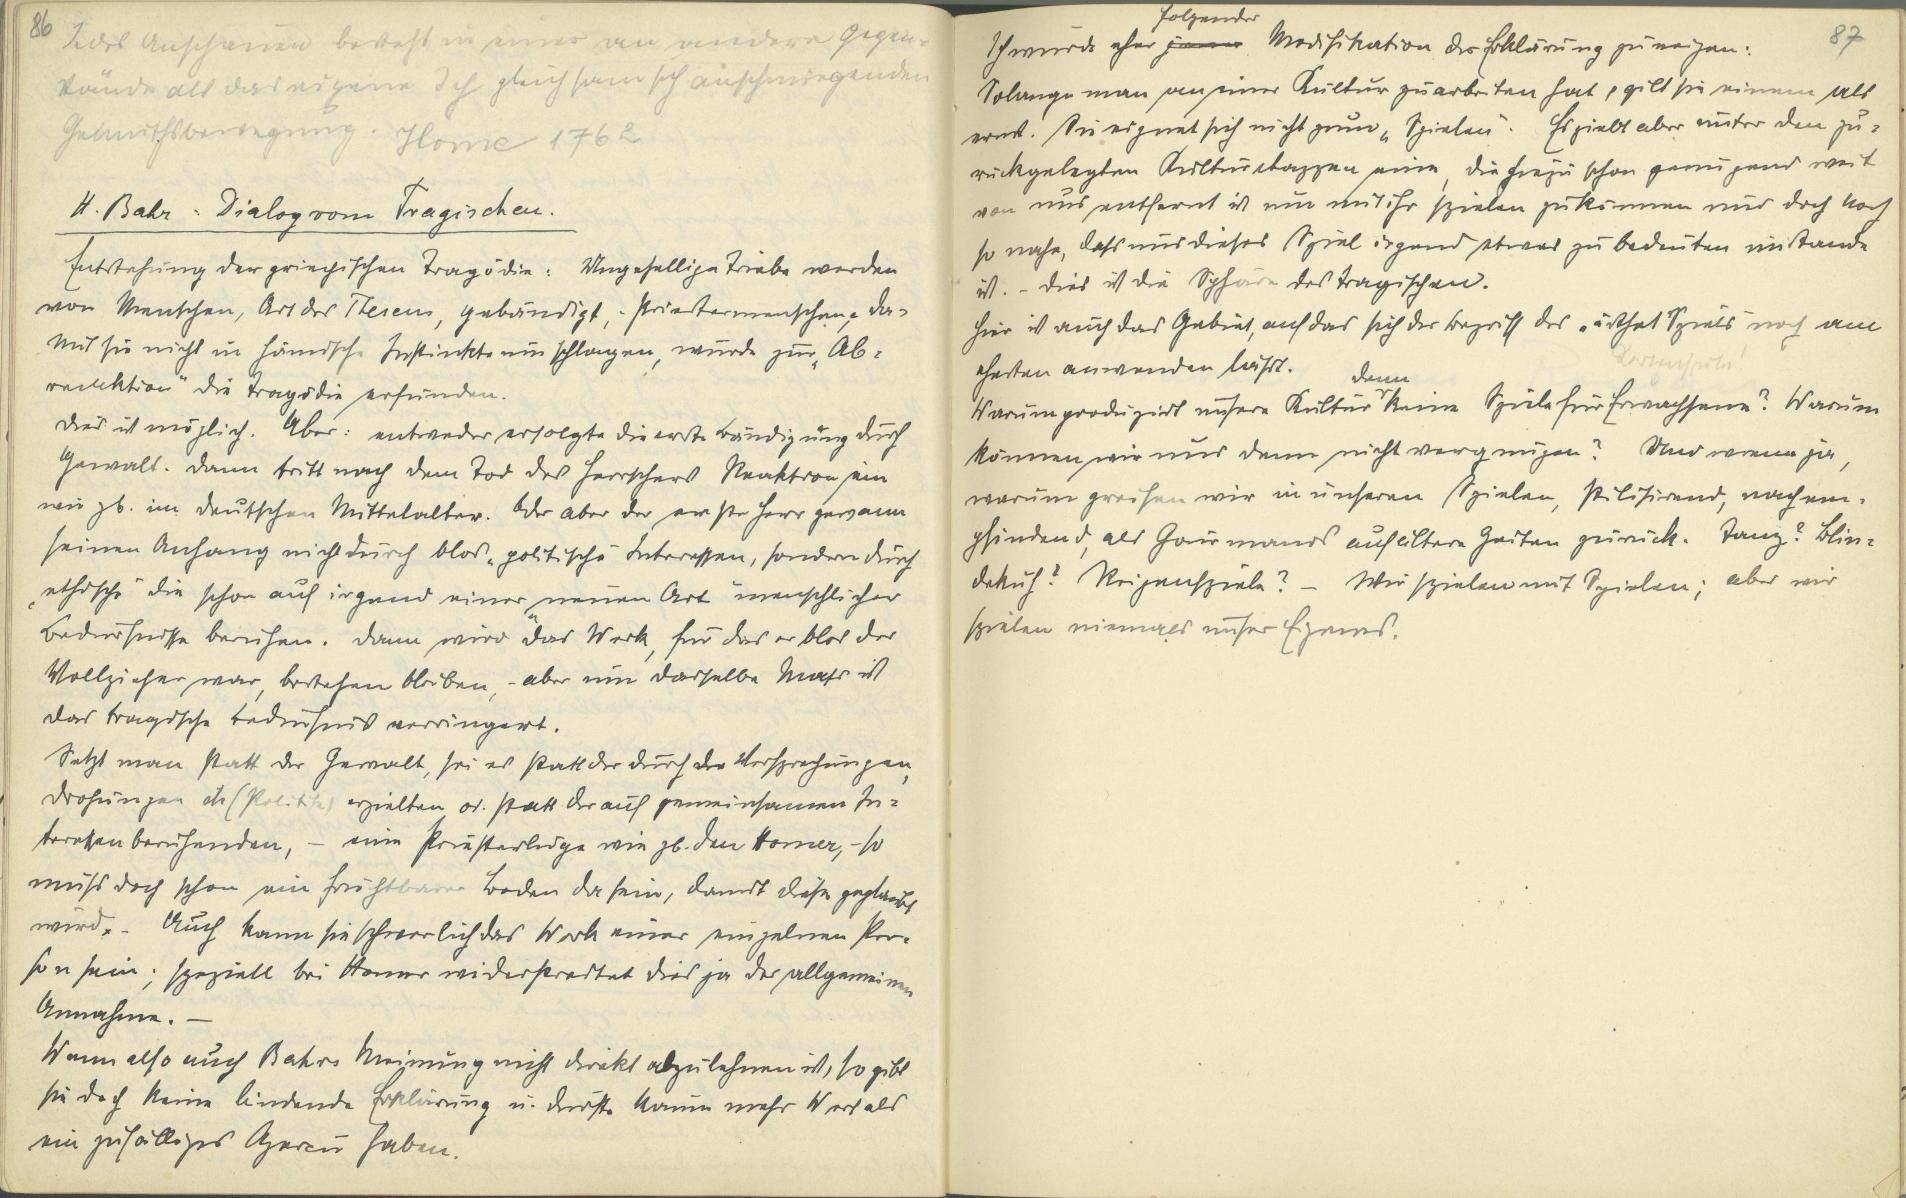 86
Jedes Anschauen besteht in einer an andere Gegen=
stände als das eigene Ich gleichsam sich anschmiegenden
Gemüthsbewegung. Home 1762
H. Bahr: Dialog vom Tragischen.
Entstehung der griechischen Tragödie: Ungesellige Triebe werden
von Menschen, Art des Theseus, gebändigt, - Priestermenschen, da=
mit sie nicht in hämische Instinkte umschlagen, wurde zur „Ab=
reaktion" die Tragödie erfunden.
Dies ist möglich. Aber: entweder erfolgte die erste Bändigung durch
Gewalt. Dann tritt nach dem Tod des Herrschers Reaktion ein
wie zb. im deutschen Mittelalter. Oder aber der erste Herr gewann
seinen Anhang nicht durch blos „politische Interessen, sondern durch
„ethische" die schon auf irgend einer neuen Art menschlicher
Bedürfnisse beruhen. Dann wird das Werk, für das er blos der
Vollzieher war, bestehen bleiben, - aber um dasselbe Mass ist
das tragische Bedürfnis verringert.
Setzt man statt der Gewalt, sei es statt der durch den Versprechungen,
Drohungen etc (Politik) erzielten od. statt der auf gemeinsamen In=
teressen beruhenden, – eine Priesterlüge wie zb. den Homer, - so
muss doch schon ein fruchtbarer Boden da sein, damit diese geglaubt
wird. - Auch kann sie schwerlich das Werk einer einzelnen Per=
son sein; speziell bei Homer widerstreitet dies ja der allgemeinen
Annahme. –
Wenn also auch Bahrs Meinung nicht direkt abzulehnen ist, so gibt
sie doch keine bindende Erklärung u. dürfte kaum mehr Wert als
ein zufälliges Apercu haben.
87
folgender
Ich würde eher jener Modifikation der Erklärung zuneigen:
Solange man an einer Kultur zu arbeiten hat, gilt sie einem als
ernst. Sie eignet sich nicht zum „Spielen". Es giebt aber unter den zu=
rückgelegten Kulturetappen eine, die hiezu schon genügend weit
von uns entfernt ist um mit ihr spielen zu können und doch noch
so nahe, dass uns dieses Spiel irgend etwas zu bedeuten imstande
ist. - Dies ist die Sphäre des Tragischen.
Hier ist auch das Gebiet, auf das sich der Begriff des „ästhet Spiels" noch am
ehesten anwenden lässt.
denn
Warum produzirt unsere Kultur keine Spiele für Erwachsene? Warum
können wir uns denn nicht vergnügen? Und wenn ja,
warum greifen wir in unseren Spielen, stilisirend, nachem=
pfindend, als Gourmands auf ältere Zeiten zurück. Tanz? Blin=
dekuh? Reigenspiele? – Wir spielen mit Spielen; aber wir
spielen niemals unser Eigenes.